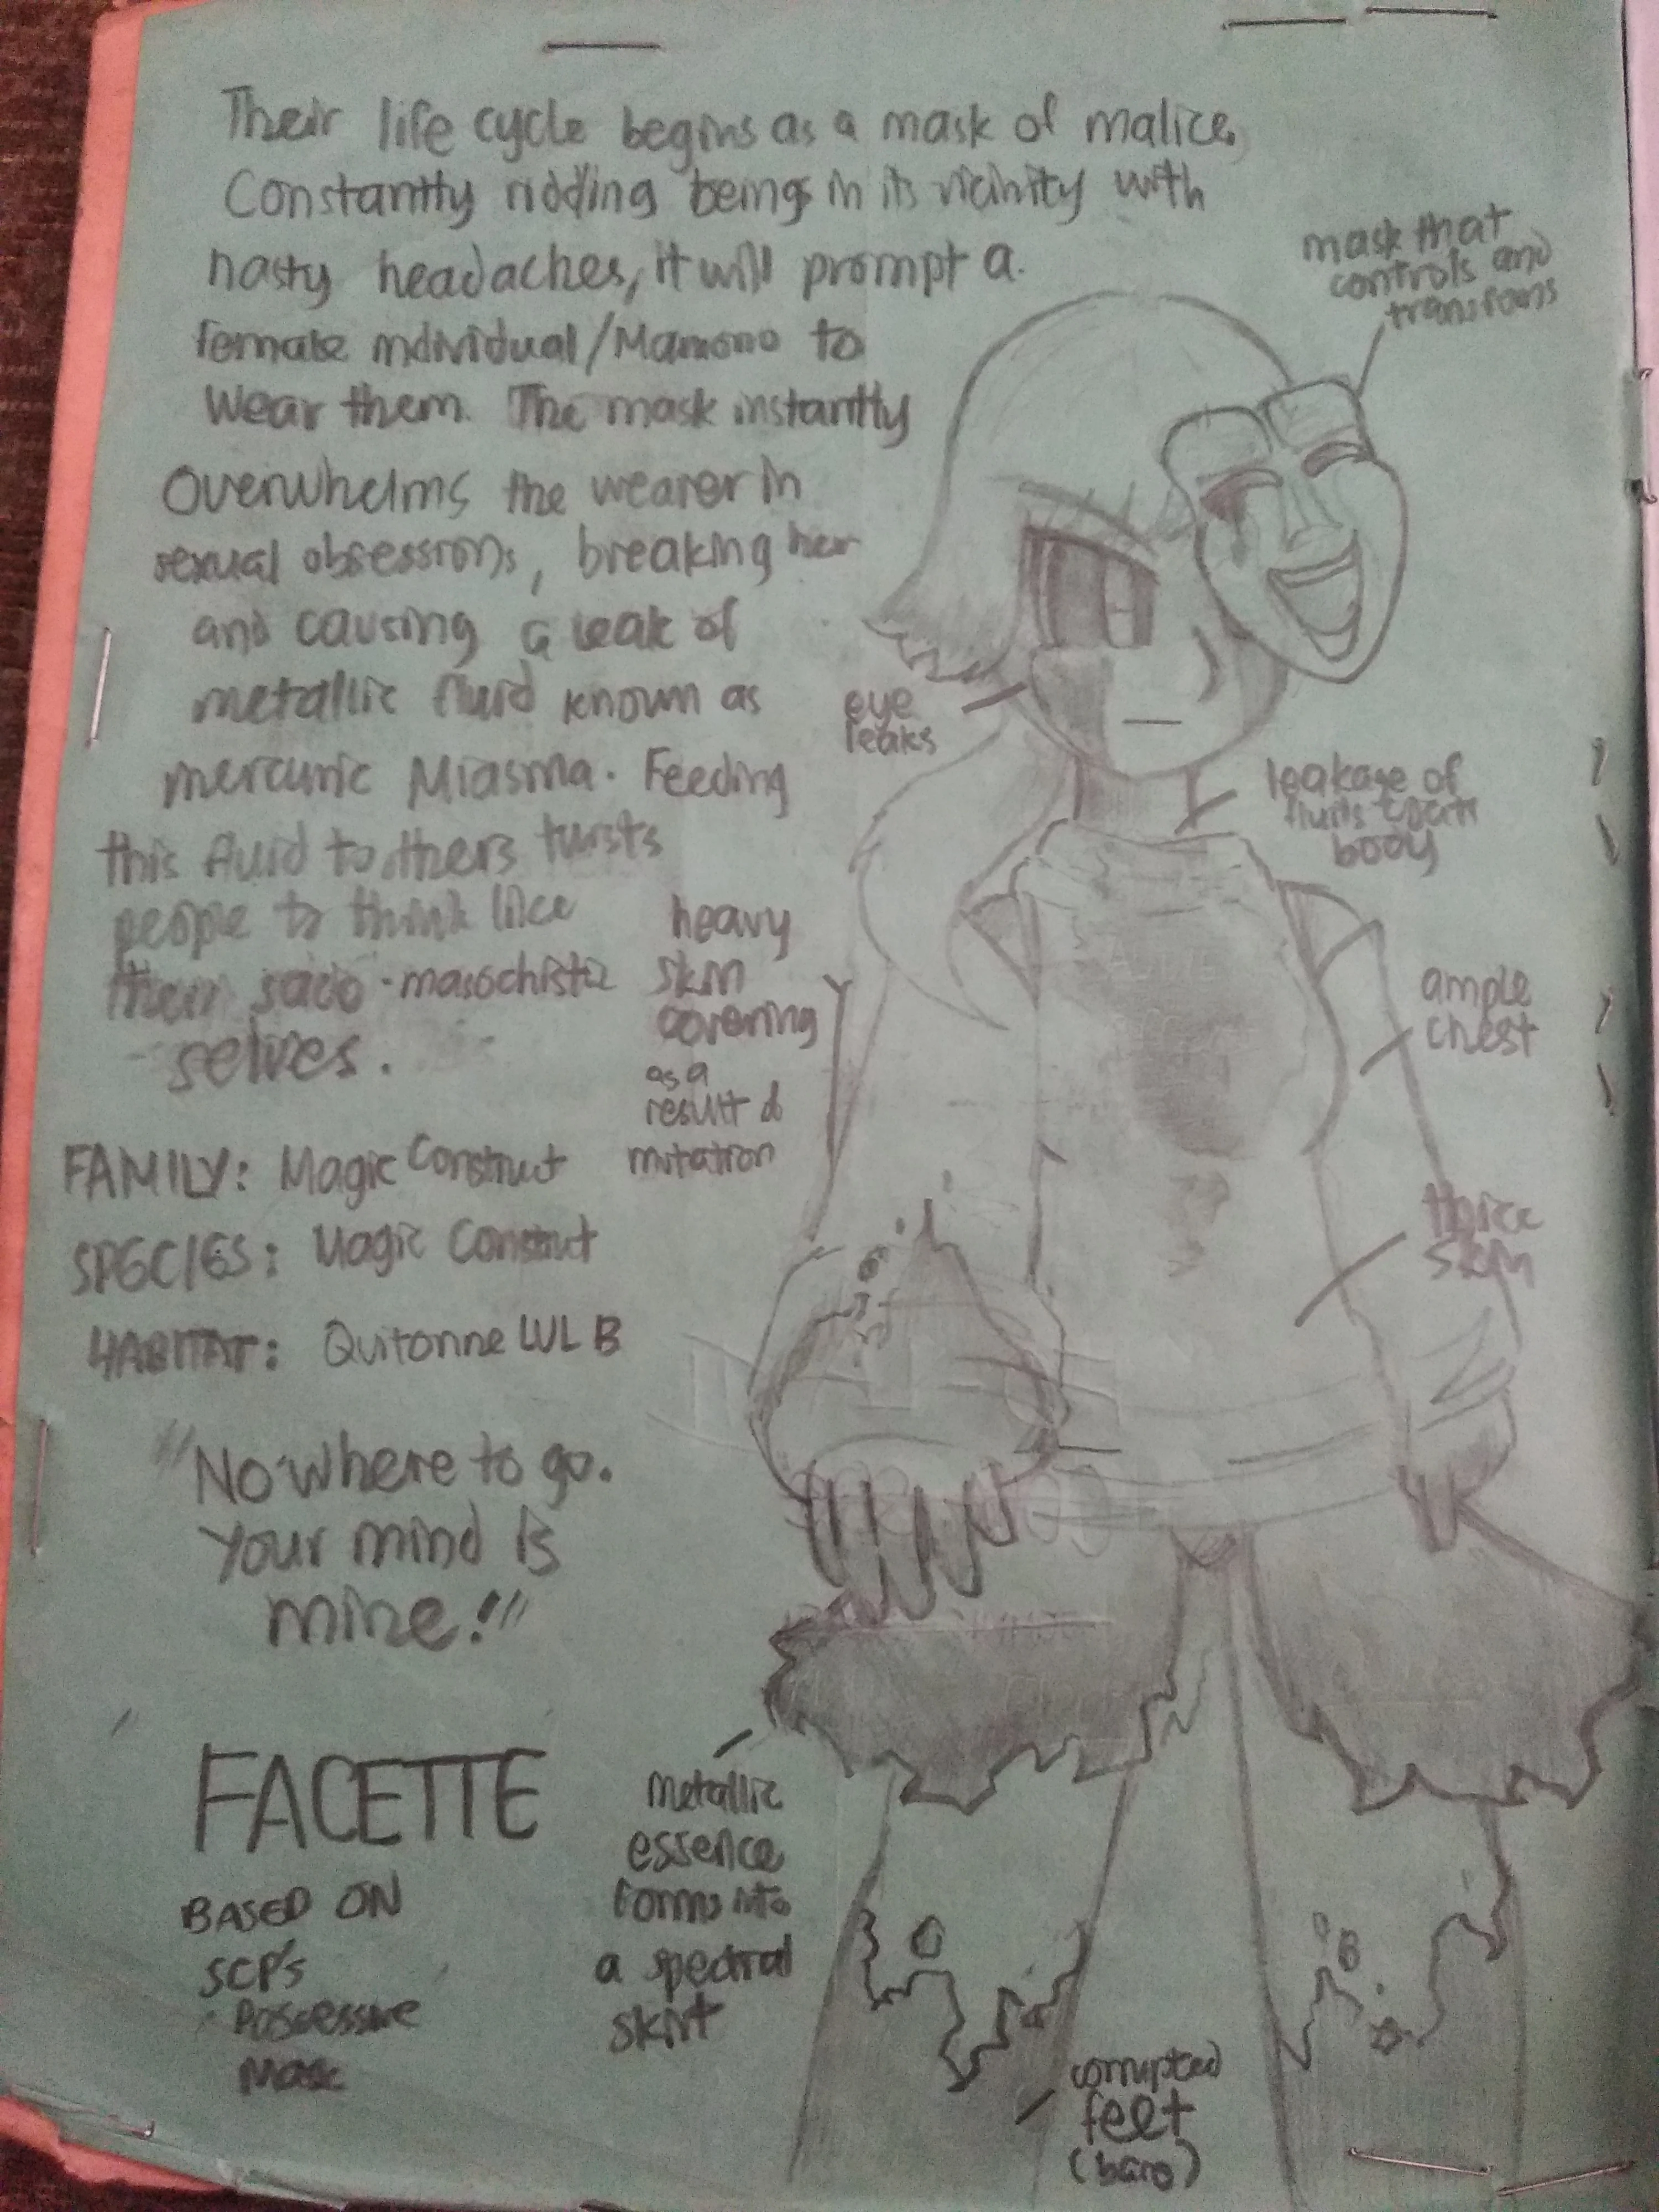 Their life cycle begins as a mask of malice.
Constantly ridding beings in its vicinity with
nasty headaches, it will prompt a
female individual/Mamono to
wear them. The mask instantly
Overwhelms the wearer in
sexual obsessions, breaking her
and causing a leak of
metallic fluid known as
mercuric Miasma. Feeding
this fluid to others twists
people to think like
their sado-masochistic
selves.
FAMILY: Magic Construct
SPECIES: Magic Construct
HABITAT: Quitonne LVL B
"No where to go.
Your mind is
mine!"
FACETTE
BASED ON
SCP's
Possessive
Mask
mask that
controls and
transforms
eye
leaks
leakage of
fluids
body
heavy
skin
covering
as a
result of
mutation
ample
chest
thick
skin
metallic
essence
forms into
a spectral
skirt
corrupted
feet
(bare)